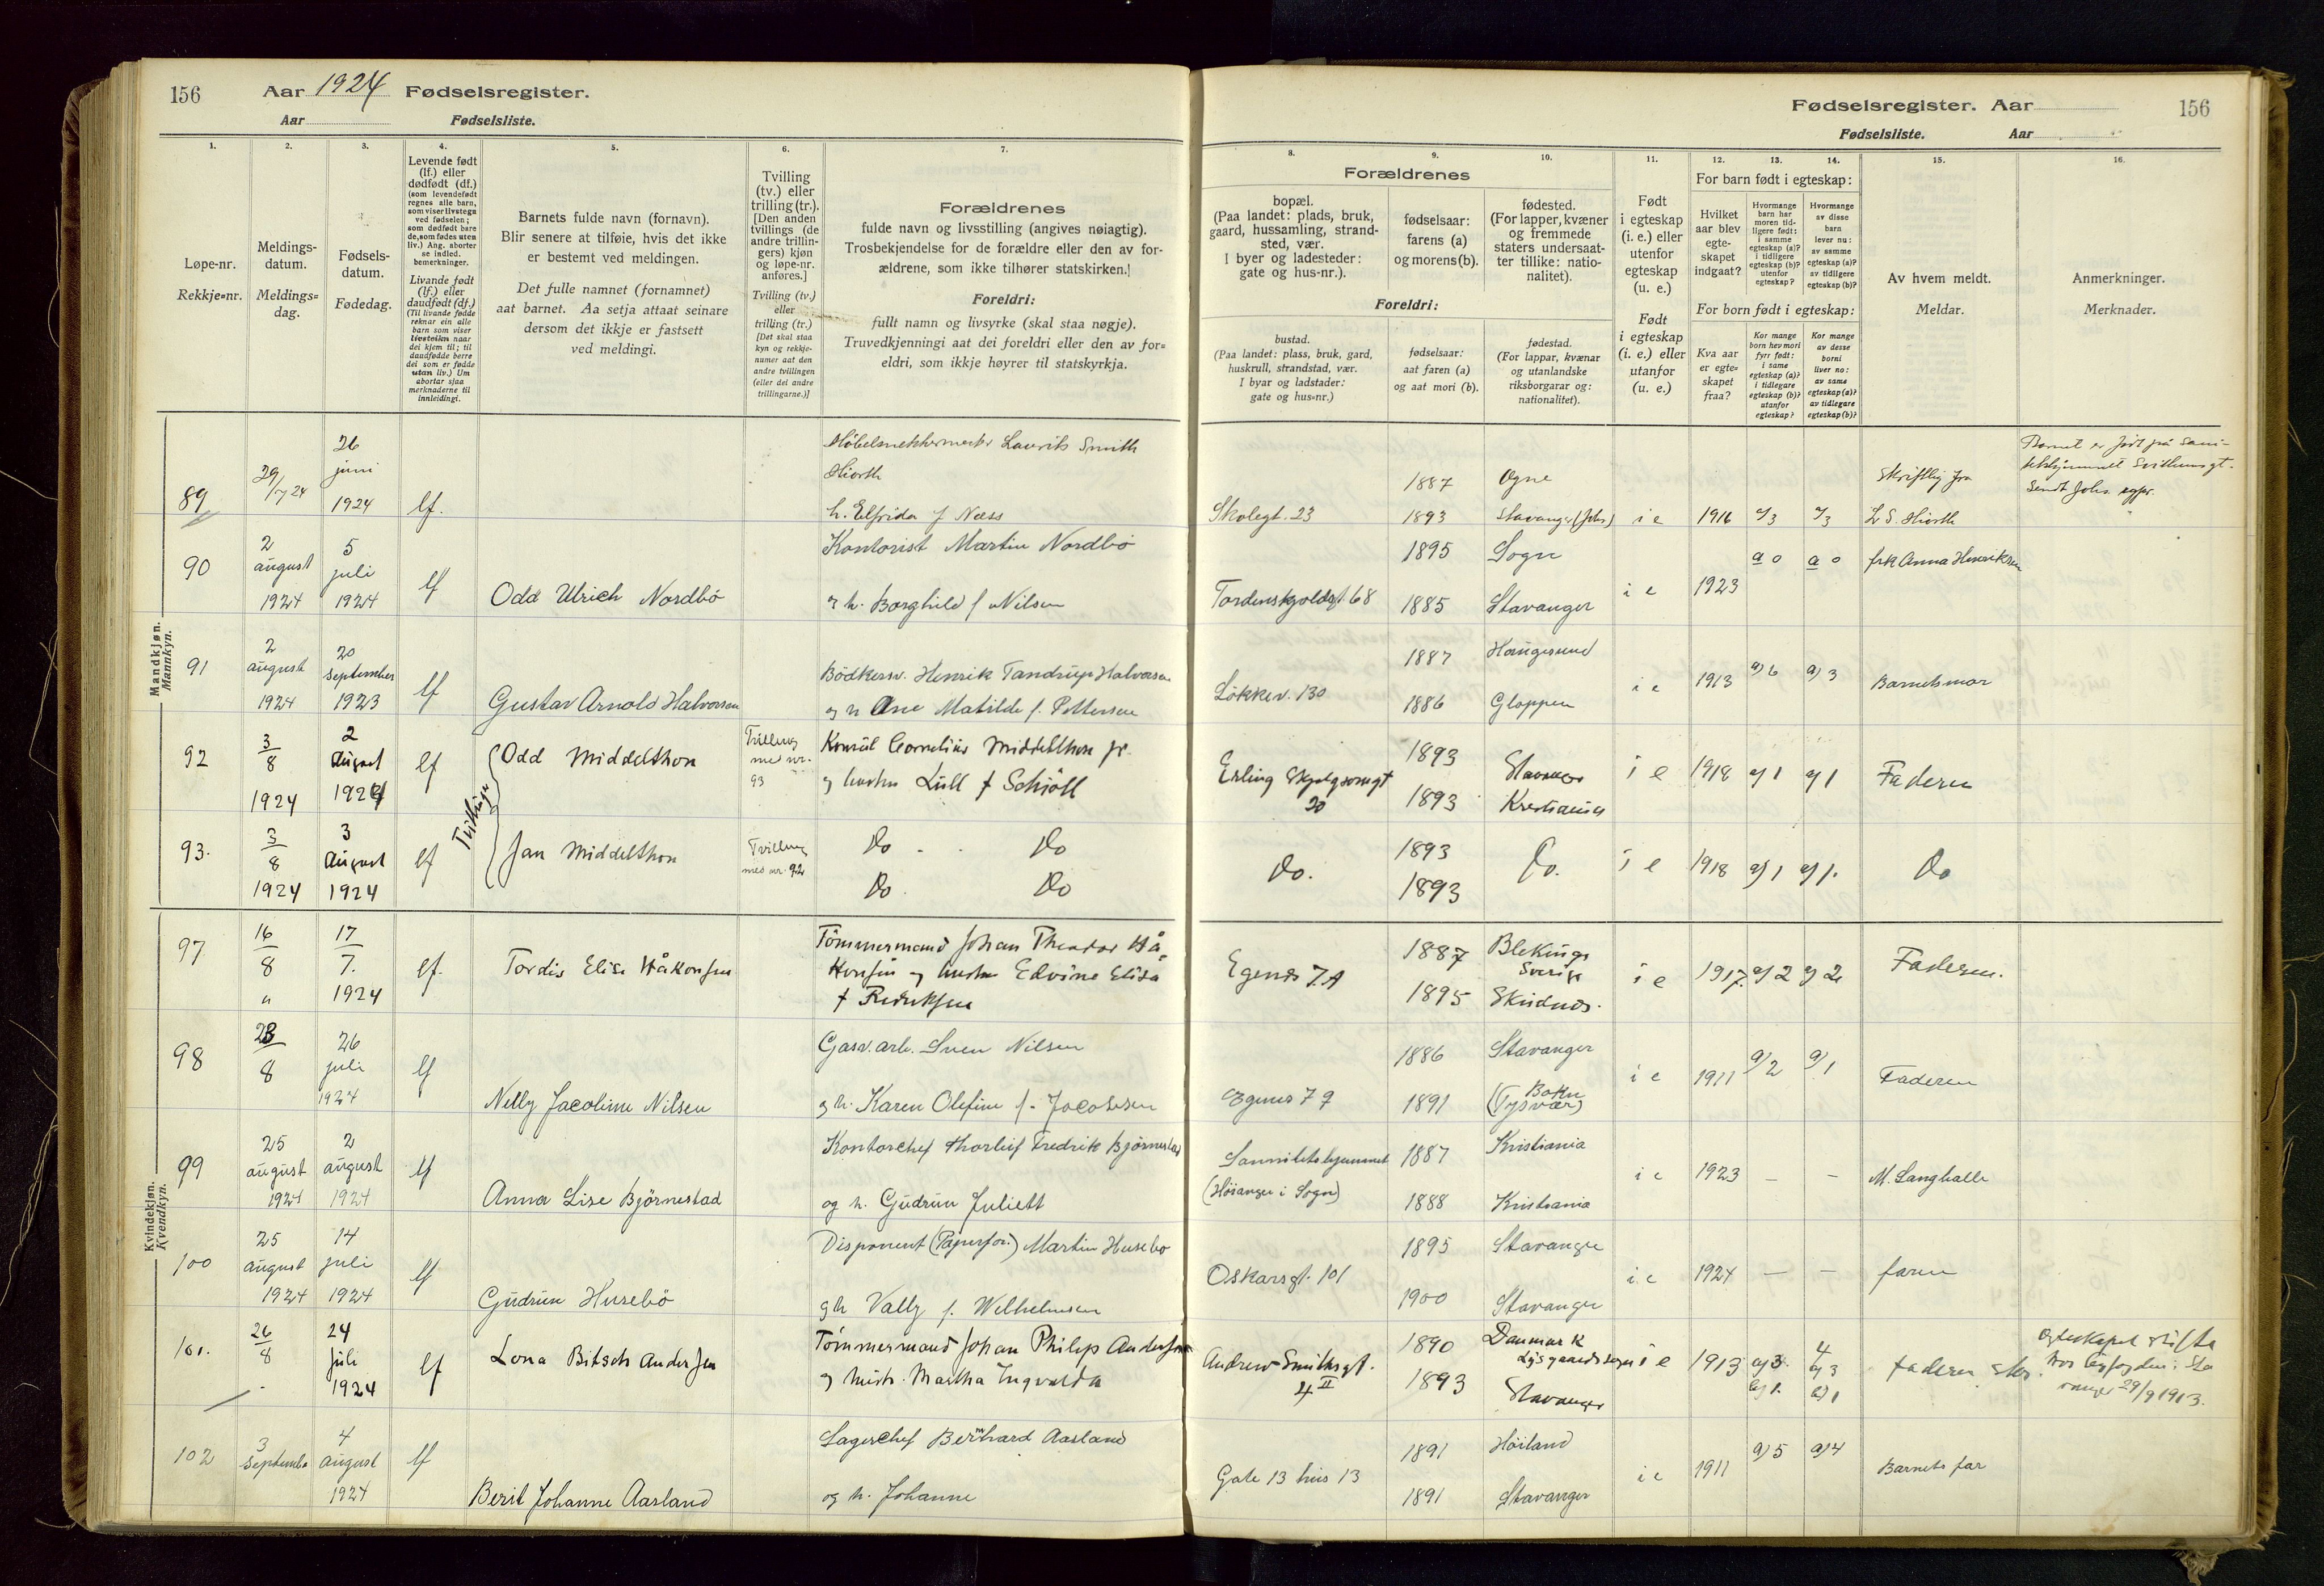 156 Aar 1924 Fødselsregister.
Aar Fødselsliste.
Fødselsregister. Aar 156
Fødselsliste. Aar
1. 2. 3. 4. 5. 6. 7.
Løpe-nr.
Rekkje=nr.
Meldings-
datum.
Meldings=
dag.
Fødsels-
datum.
Fødedag.
Levende født
(lf.) eller
dødfødt (df.)
(som levendefødt
regnes alle barn,
som viser livstegn
ved fødselen;
som dødfødt bare
de, som fødes uten
liv.) Ang. aborter
se indled.
bemerkninger.
Livande født
(lf.) eller
daudfødt (df.)
(Til livande fødde
reknar ein alle
barn som viser
livsteikn naar
dei kjem til; til
daudfødde berre
dei som er fødde
utan liv.) Um
abortar sjaa
merknaderne til
innleidingi.
Barnets fulde navn (fornavn).
Blir senere at tilføie, hvis det ikke
er bestemt ved meldingen.
Det fulle namnet (fornamnet)
aat barnet. Aa setja attaat seinare
dersom det ikkje er fastsett
ved meldingi.
Tvilling
(tv.) eller
trilling (tr.).
[Den anden
tvillings (de
andre trillin-
gers) kjøn
og løpe-nr.
anføres.]
Tvilling (tv.)
eller
trilling (tr.)
[Det skal staa
kyn og rekkje-
numer aat den
andre tvillingen
(eller dei andre
trillingarne.)]
Forældrenes
fulde navn og livsstilling (angives nøiagtig).
Trosbekjendelse for de forældre eller den av for-
ældrene, som ikke tilhører statskirken.]
Foreldri:
fullt namn og livsyrke (skal staa nøgje).
Truvedkjenningi aat dei foreldri eller den av for=
eldri, som ikkje høyrer til statskyrkja.
8. 9. 10. 11. 12. 13. 14. 15. 16.
Forældrenes
bopæl.
(Paa landet: plads, bruk,
gaard, hussamling, strand-
sted, vær.
I byer og ladesteder:
gate og hus-nr.).
fødselsaar:
farens (a)
og morens (b).
fødested.
(For lapper, kvæner
og fremmede
staters undersaat-
ter tillike: natio-
nalitet).
Foreldri:
bustad.
(Paa landet: plass, bruk, gard,
huskrull, strandstad, vær.
I byar og ladstader:
gate og hus=nr.)
fødselsaar:
aat faren (a)
og aat mori (b).
fødestad.
(For lappar, kvænar
og utanlandske
riksborgarar og:
nationalitet).
Født
i egteskap
(i. e.) eller
utenfor
egteskap
(u. e.)
Født
i egteskap
(i. e.) eller
utanfor
(u. e.)
For barn født i egteskap:
Hvilket
aar blev
egte-
skapet
indgaat?
Hvormange
barn har
moren tid-
ligere født:
i samme
egteskap (a)?
i tidligere
egteskap (b)?
utenfor
egteskap?
Hvormange
av disse
barn
lever nu:
av samme
egteskap (a)?
av tidligere
egteskap (b)?
For born født i egteskap:
Kva aar
er egte=
skapet
fraa?
Kor mange
born hev mori
fyrr født:
i same
egteskap (a)?
i tidlegare
egteskap (b)?
utanfor
egteskap?
Kor mange
av desse
borni
liver no:
av same
egteskap (a)?
av tidlegare
egteskap (b)?
Av hvem meldt.
Meldar.
Anmerkninger.
Merknader.
Mandkjøn.
Mannkyn.
89 29/7 24 26 juni 1924 lf. Laurits Smith
Hiorth
h. Elfrida f Næss
Skolegt. 23 1887 Ogne
1893 Stavanger i e 1916 a/3 a/3 Skriftlig fra
L S. Hiorth
Barnet er født på
90 2 august 1924 5 juli 1924 lf Odd Ulrich Nordbö
Kontorist Martin Nordbö
og h. Borghild f Nilsen
Tordenskjoldsgt 68 1895 Sogn
1885 Stavanger i e 1923 a 0 a 0 frk Anna Henriksen
91 2 august 1924 20 september 1923 lf Gustav Arnold Halvorsen
Bödkersv. Henrik Tandrup Halvorsen
og h Ane Matilde f. Pettersen
Løkkev. 130 1887 Haugesund
1886 Gloppen i e 1913 a) 6 a) 3 Barnets mor
92 3/8 1924 2 August 1924 lf Odd Middelthon
Tvillinge
Tvilling
med nr.
93
Konsul Cornelius Middelthon jr.
og hustru Lull f Schiöll
Erling Skjalgsonsgt
20
1893 Stavanger
1893 Kristiania i e 1918 a) 1 a) 1 Faderen
93. 3/8 1924 3 August 1924 lf Jan Middelthon
Tvilling
med nr. 92
Do Do
Do Do
Do. 1893
1893 Do. i e 1918 a) 1 a) 1. Do
Kvindekjøn.
Kvendkyn.
97 16/8 " 17/7. 1924 lf. Tordis Elise Håkonsen
Tömmermand Johan Theodor Hå
konsen og hustru Edvine Elisa
f Rediksen
Egenes 7A 1887 Blekinge
Sverige
1895 Skudnes. i e 1917. a) 2 a) 2 Faderen.
98 23/8 26 juli 1924 lf Nelly Jacobine Nilsen
Gasv. arb. Sven Nilsen
og h. Karen Olefine f. Jacobsen
Egenes 79 1886 Stavanger
1891 Bokn
(Tysvær) i e 1911 a/2 a/1 Faderen
99 25 august 1924 2 august 1924 lf Anna Lise Björnestad
Kontorchef Thorleif Fredrik Björnestad
og h. Gudrun Juliett
Sannitetshjemmet
(Höianger i Sogn)
1887 Kristiania
1888 Kristiania i e 1923 — — M. Langhalle
100 25 august 1924 14 juli 1924 lf Gudrun Husebö
Disponent (Papirfor.) Martin Husebö
og h Vally f. Wilhelmsen
Oskarsgt. 101 1895 Stavanger
1900 Stavanger i e 1924 — — faren
101. 26/8 24 juli 1924 lf Lona Bitsch Andersen
Tömmermand Johan Philip Andersen
og hustr. Martha Ingvalda
Andrew Smithsgt.
4 II
1890 Danmark
1893 Stavanger i e 1913 a) 3. b) 1. 4 a) 3 b) 1 Faderen skr.
Egteskapet stifta
hos byfogden i Sta
vanger 29/9 1913.
102 3 september 4 august 1924 lf Berit Johanne Aasland
Lagerchef Bernhard Aasland
og h. Johanne
Gate 13 hus 13 1891 Höiland
1891 Stavanger i e 1911 a) 5 a) 4 Barnets far